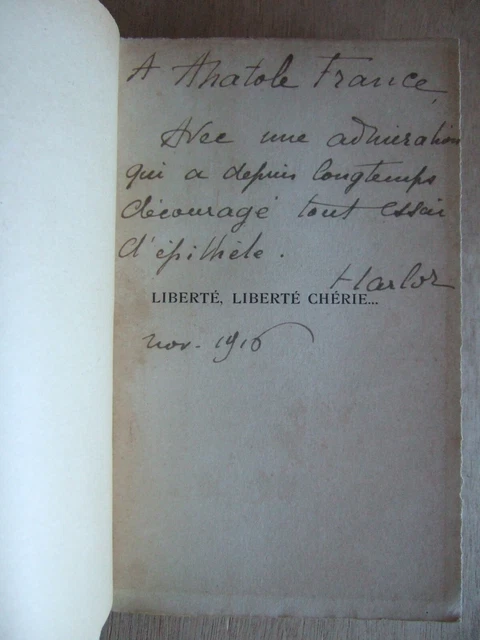 A Anatole France,
Avec une admiration
qui a depuis longtemps
découragé tout essai
d'épithète.
Harlor
LIBERTÉ, LIBERTÉ CHÉRIE...
nov. 1916